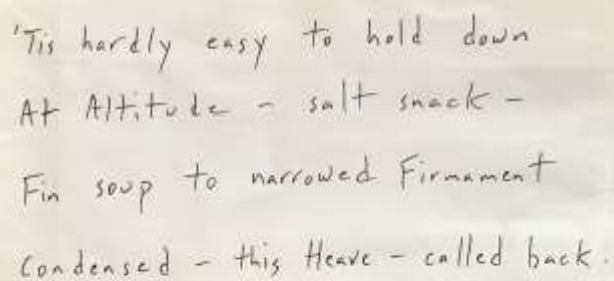 'Tis hardly easy to hold down
At Altitude - salt snack -
Fin soup to narrowed Firmament
Condensed - this Heave - called back.